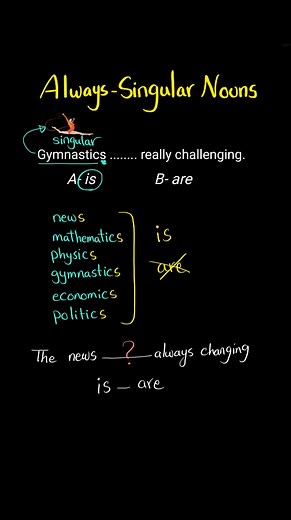 Always-Singular Nouns
singular
Gymnastics ........ really challenging.
A- is B- are
news
mathematics
physics
gymnastics
economics
politics
is
are
The news ? always changing
is - are